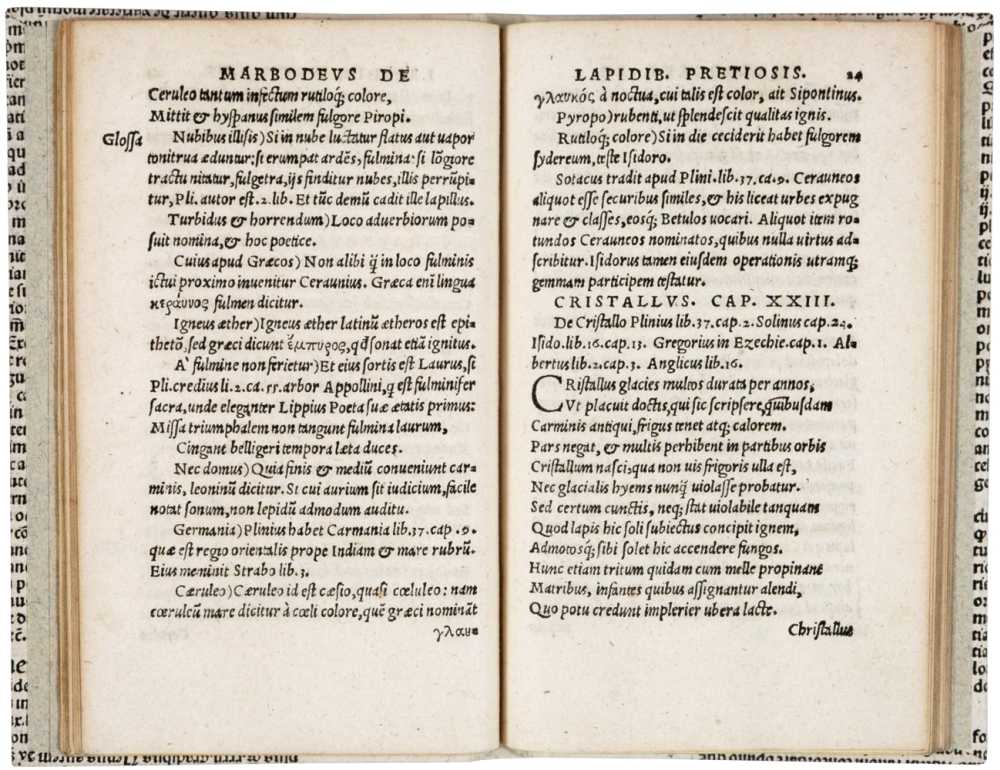 MARBODEVS DE
Ceruleo tantum infectum rutiloq; colore,
Mittit & hyspanus similem fulgore Piropi.
Glossa
Nubibus illisis) Si in nube luctatur flatus aut uapor
tonitrua æduntur: si erumpat ardẽs, fulmina: si lõgiore
tractu nitatur, fulgetra, ijs finditur nubes, illis perrũpi-
tur, Pli. autor est. 2. lib. Et tũc demũ cadit ille lapillus.
Turbidus & horrendum) Loco aduerbiorum po-
suit nomina, & hoc poetice.
Cuius apud Græcos) Non alibi q̃ in loco fulminis
ictui proximo inuenitur Ceraunius. Græca enĩ lingua
κεραυνος fulmen dicitur.
Igneus æther) Igneus æther latinũ ætheros est epi-
thetõ, sed græci dicunt ἔμπυρος, qđ sonat etiã ignitus.
A' fulmine non ferietur) Et eius sortis est Laurus, si
Pli. credius li. 2. ca. 55. arbor Appollini, q est fulminifer
sacra, unde eleganter Lippius Poeta suæ ætatis primus:
Missa triumphalem non tangunt fulmina laurum,
Cingant belligeri tempora læta duces.
Nec domus) Quia finis & mediũ conueniunt car-
minis, leoninũ dicitur. Si cui aurium sit iudicium, facile
notat sonum, non lepidũ admodum auditu.
Germania) Plinius habet Carmania lib. 37. cap. 9.
quæ est regio orientalis prope Indiam & mare rubrũ.
Eius meminit Strabo lib. 3.
Cæruleo) Cæruleo id est cæsio, quasi cœluleo: nam
cœruleũ mare dicitur à cœli colore, quẽ græci nominãt
γλαυ-
LAPIDIB. PRETIOSIS. 24
γλαυκός, à noctua, cui talis est color, ait Sipontinus.
Pyropo) rubenti, ut splendescit qualitas ignis.
Rutiloq; colore) Si in die ceciderit habet fulgorem
sydereum, teste Isidoro.
Sotacus tradit apud Plini. lib. 37. ca. 9. Cerauneos
aliquot esse securibus similes, & his liceat urbes expug
nare & classes, eosq; Betulos uocari. Aliquot item ro-
tundos Cerauneos nominatos, quibus nulla uirtus ad-
scribitur. Isidorus tamen eiusdem operationis utramq;
gemmam participem testatur.
CRISTALLVS. CAP. XXIII.
De Cristallo Plinius lib. 37. cap. 2. Solinus cap. 24.
Isido. lib. 16. cap. 13. Gregorius in Ezechie. cap. 1. Al-
bertus lib. 2. cap. 3. Anglicus lib. 16.
CRistallus glacies multos durata per annos,
Vt placuit doctis, qui sic scripsere, quibusdam
Carminis antiqui, frigus tenet atq; calorem.
Pars negat, & multis perhibent in partibus orbis
Cristallum nasci, qua non uis frigoris ulla est,
Nec glacialis hyems nunq̃ uiolasse probatur.
Sed certum cunctis, neq; stat uiolabile tanquam
Quod lapis hic soli subiectus concipit ignem,
Admotosq; sibi solet hic accendere fungos.
Hunc etiam tritum quidam cum melle propinant
Matribus, infantes quibus assignantur alendi,
Quo potu credunt implerier ubera lacte.
Christallus